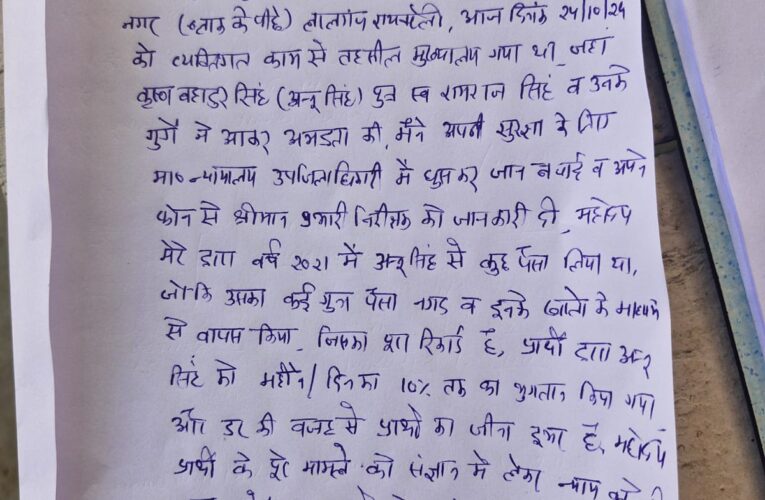 नगर (ब्लाक के पीछे) लालगंज रायबरेली, आज दिनांक 24/10/24
को व्यक्तिगत काम से तहसील मुख्यालय गया था, जहां
कृष्ण बहादुर सिंह (अन्नू सिंह) पुत्र स्व रामराज सिंह व उनके
गुर्गे ने आकर अभद्रता की, मैंने अपनी सुरक्षा के लिए
मा० न्यायालय उपजिलाधिकारी में घुस कर जान बचाई व अपने
फोन से श्रीमान प्रभारी निरीक्षक को जानकारी दी, महोदय
मेरे द्वारा वर्ष 2021 में अन्नू सिंह से कुछ पैसा लिया था,
जोकि उसका कई गुना पैसा नगद व इनके खातो के माध्यम
से वापस किया, जिसका पूरा रिकार्ड है, प्रार्थी द्वारा अन्नू
सिंह को महीने/दिन का 10% तक का भुगतान किया गया
और डर की वजह से प्रार्थी का जीना हुआ है, महोदय
प्रार्थी के पूरे मामले को संज्ञान मे लेकर न्याय